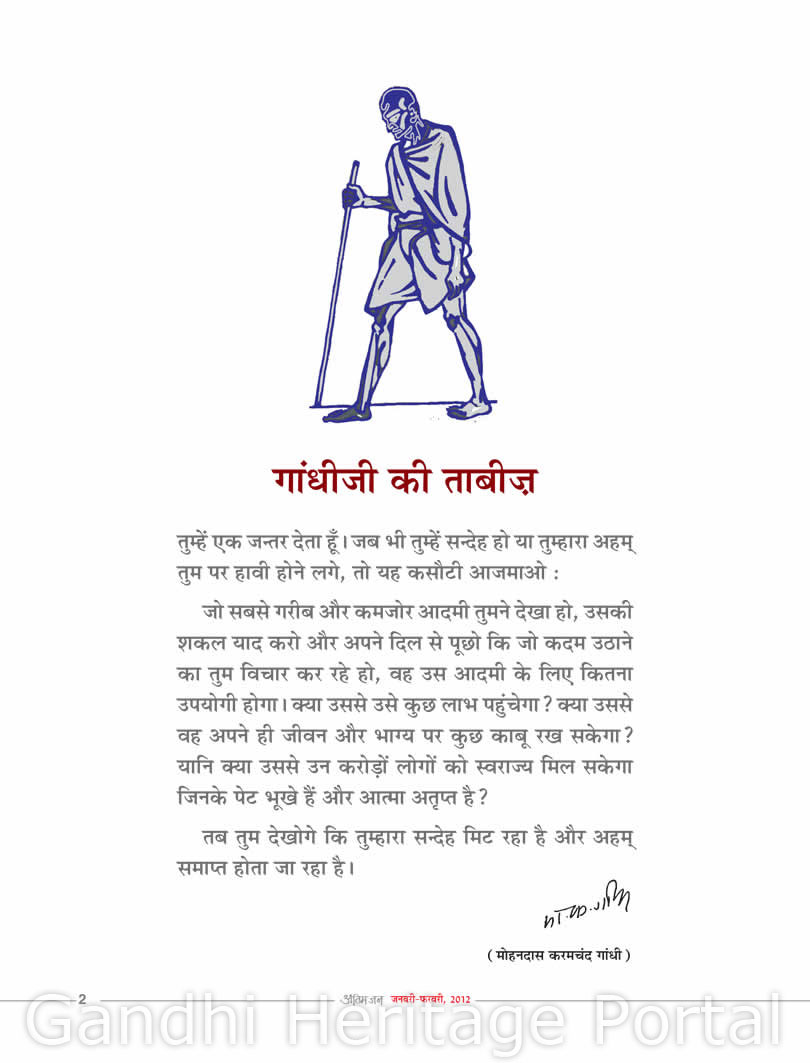 गांधीजी की ताबीज़
तुम्हें एक जन्तर देता हूँ। जब भी तुम्हें सन्देह हो या तुम्हारा अहम्
तुम पर हावी होने लगे, तो यह कसौटी आजमाओ :
जो सबसे गरीब और कमजोर आदमी तुमने देखा हो, उसकी
शकल याद करो और अपने दिल से पूछो कि जो कदम उठाने
का तुम विचार कर रहे हो, वह उस आदमी के लिए कितना
उपयोगी होगा। क्या उससे उसे कुछ लाभ पहुंचेगा? क्या उससे
वह अपने ही जीवन और भाग्य पर कुछ काबू रख सकेगा?
यानि क्या उससे उन करोड़ों लोगों को स्वराज्य मिल सकेगा
जिनके पेट भूखे हैं और आत्मा अतृप्त है?
तब तुम देखोगे कि तुम्हारा सन्देह मिट रहा है और अहम्
समाप्त होता जा रहा है।
मो.क.गांधी
(मोहनदास करमचंद गांधी)
2 अंतिम जन जनवरी-फरवरी, 2012
Gandhi Heritage Portal